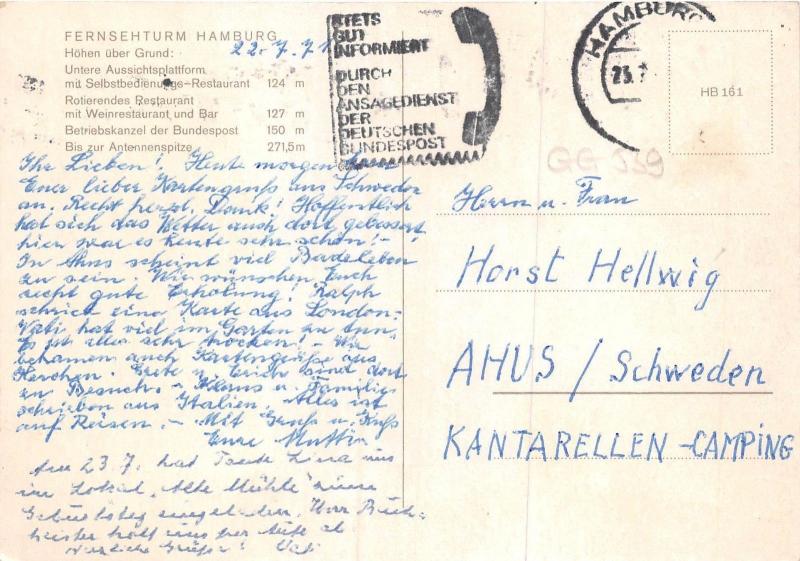 FERNSEHTURM HAMBURG
Höhen über Grund:
Untere Aussichtsplattform
mit Selbstbedienungs-Restaurant 124 m
Rotierendes Restaurant
mit Weinrestaurant und Bar 127 m
Betriebskanzel der Bundespost 150 m
Bis zur Antennenspitze 271,5 m
22.7.71
STETS
GUT
INFORMIERT
DURCH
DEN
ANSAGEDIENST
DER
DEUTSCHEN
BUNDESPOST
HAMBURG
23.
HB 161
GG 539
Ihr Lieben! Heute morgen kam
Euer lieber Kartengruß aus Schweden
an. Recht herzl. Dank! Hoffentlich
hat sich das Wetter auch dort gebessert,
hier war es heute sehr schön! -
In Ahus scheint viel Badeleben
zu sein. Wir wünschen Euch
recht gute Erholung! Ralph
schrieb eine Karte aus London.
Vati hat viel im Garten zu tun.
Es ist alles sehr trocken! - Wir
bekamen auch Kartengrüße aus
Herchen. Grete u. Erich sind dort
zu Besuch. - Klaus u. Familie
schrieben aus Italien. Alles ist
auf Reisen. - Mit Gruß u. Kuß
Eure Mutti
Am 23.7. hat Tante Lina uns
im Lokal "Alte Mühle" zum
Geburtstag eingeladen. Herr
holt uns per Auto ab
Herzliche Grüße! Vati
Herrn u. Frau
Horst Hellwig
AHUS / Schweden
KANTARELLEN-CAMPING